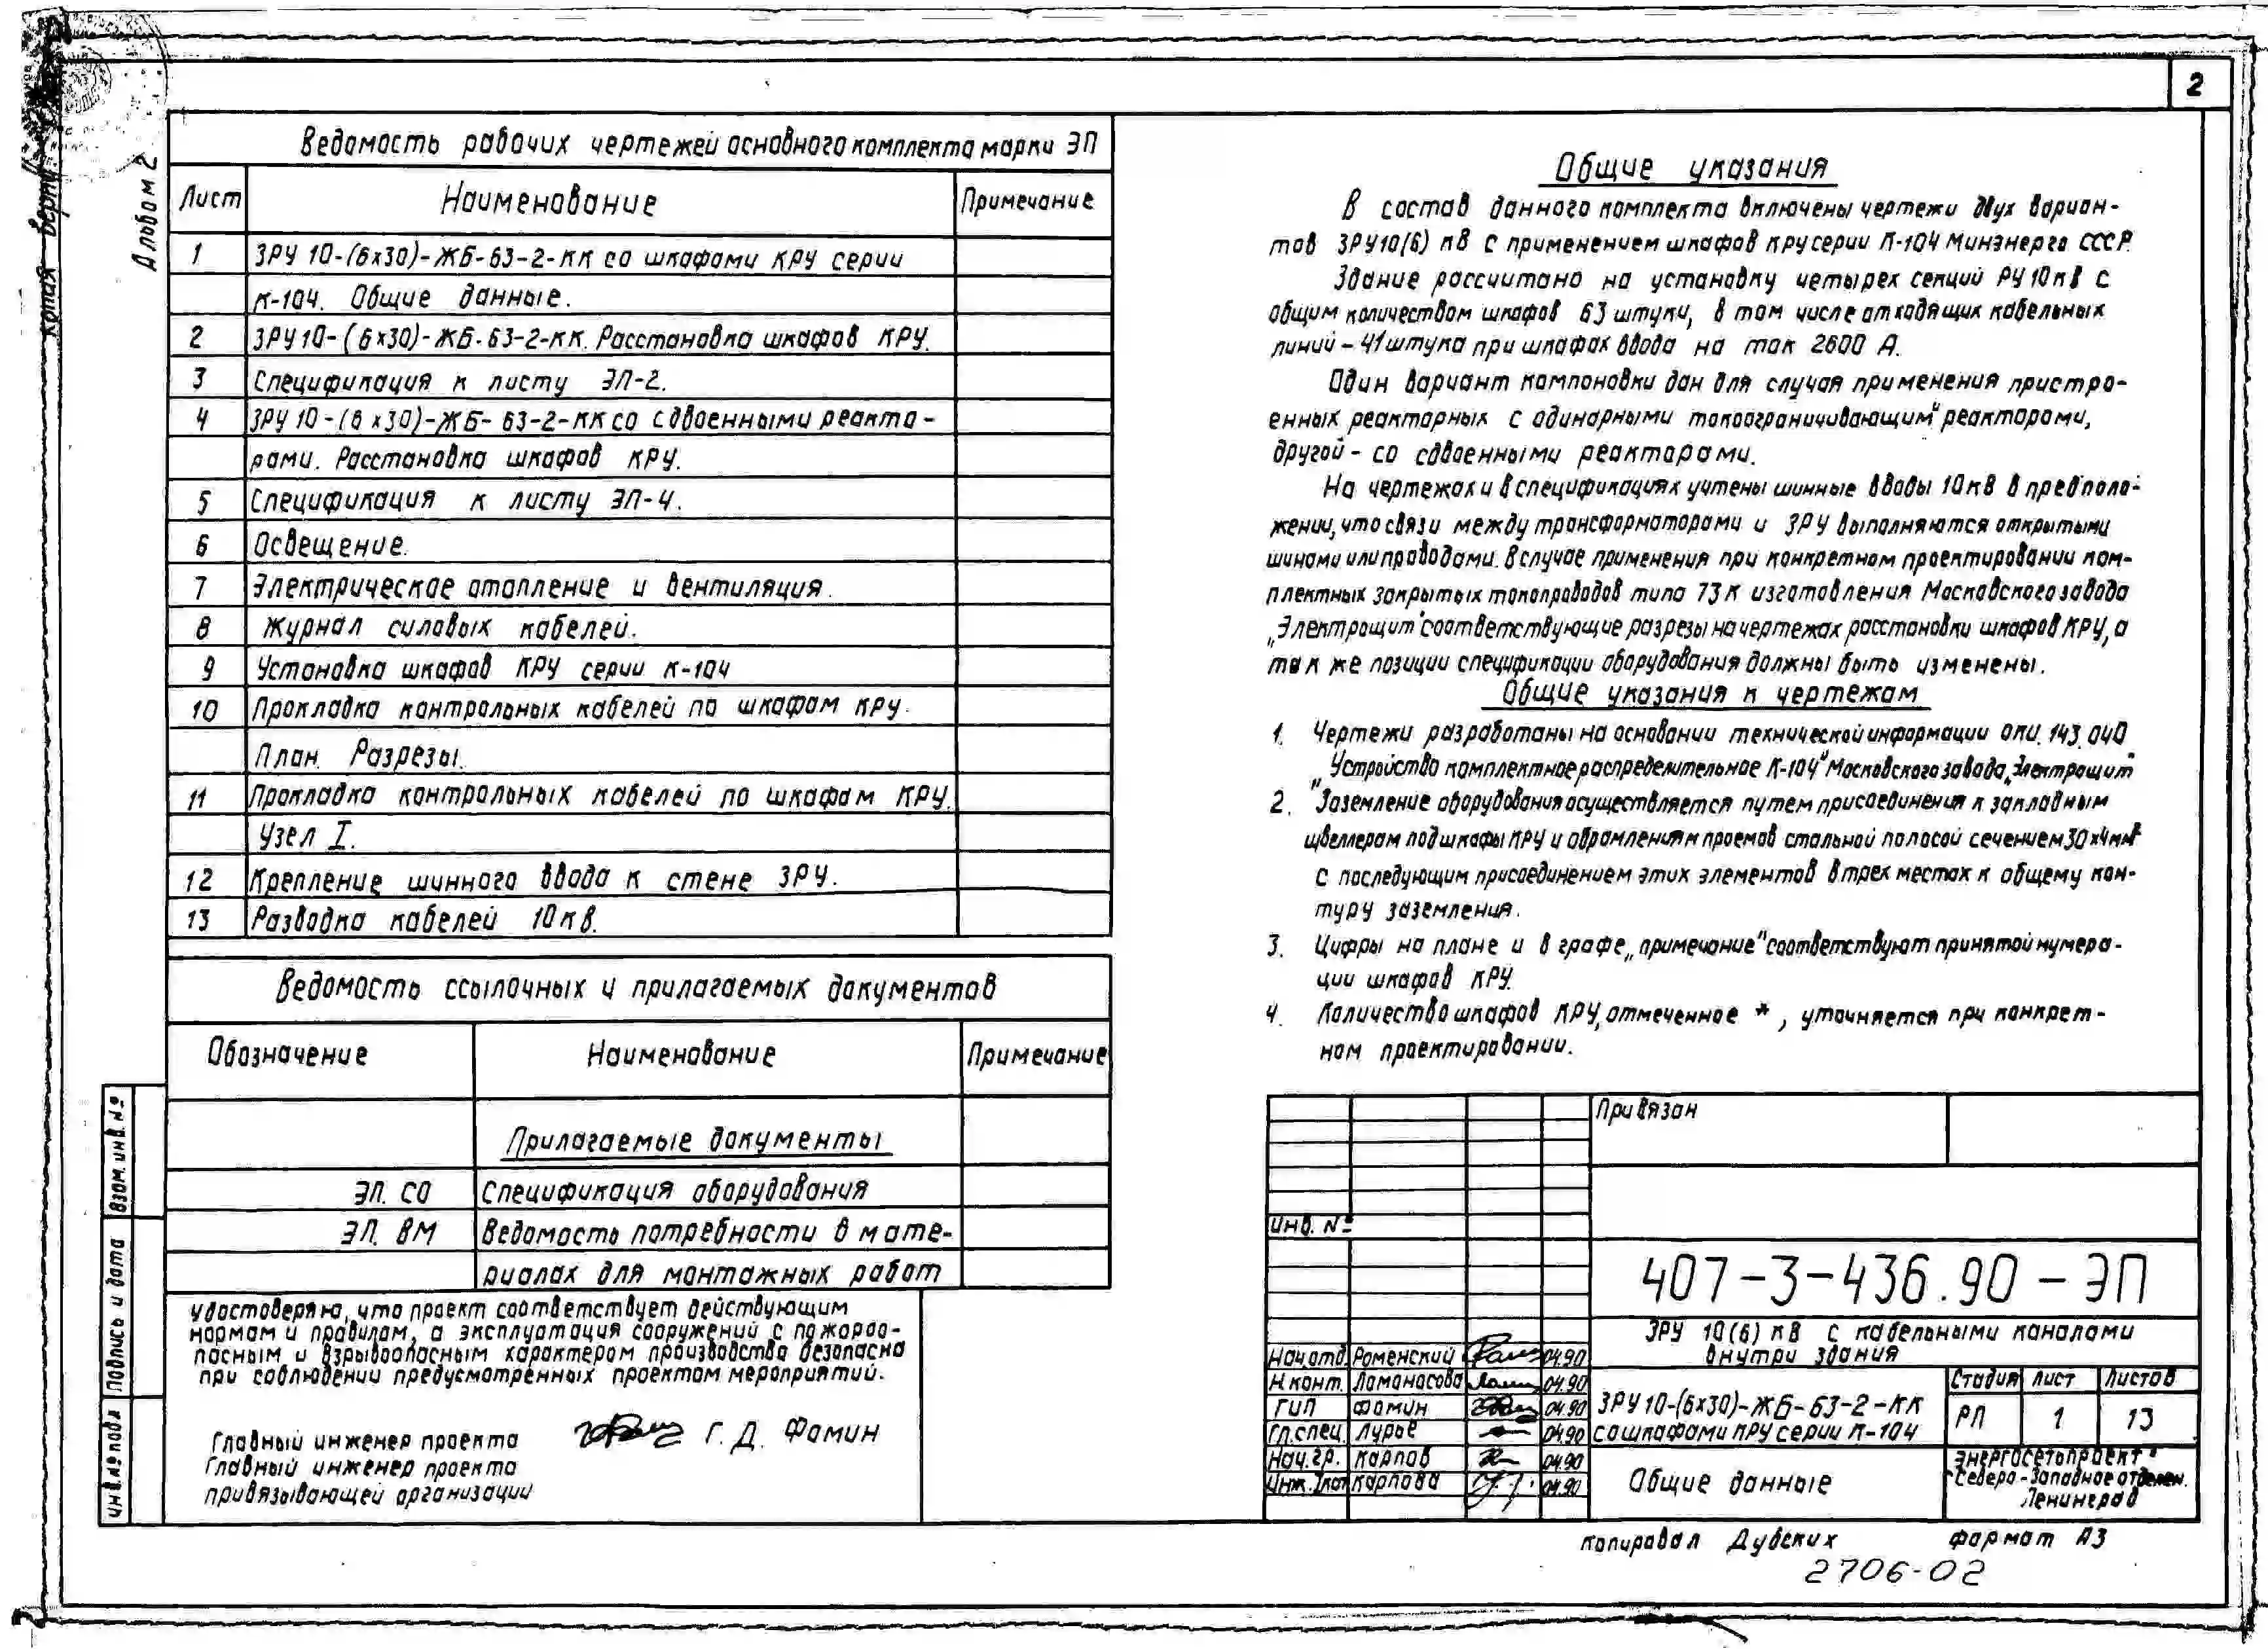 2
Альбом 2
Ведомость рабочих чертежей основного комплекта марки ЭП
Лист Наименование Примечание
1 ЗРУ 10-(6х30)-ЖБ-63-2-КК со шкафами КРУ серии
К-104. Общие данные.
2 ЗРУ 10-(6х30)-ЖБ-63-2-КК. Расстановка шкафов КРУ.
3 Спецификация к листу ЭП-2.
4 ЗРУ 10-(6х30)-ЖБ-63-2-КК со сдвоенными реакто-
рами. Расстановка шкафов КРУ.
5 Спецификация к листу ЭП-4.
6 Освещение.
7 Электрическое отопление и вентиляция.
8 Журнал силовых кабелей.
9 Установка шкафов КРУ серии К-104
10 Прокладка контрольных кабелей по шкафам КРУ.
План. Разрезы.
11 Прокладка контрольных кабелей по шкафам КРУ.
Узел I.
12 Крепление шинного ввода к стене ЗРУ.
13 Разводка кабелей 10кв.
Ведомость ссылочных и прилагаемых документов
Обозначение Наименование Примечание
Прилагаемые документы
ЭП. СО Спецификация оборудования
ЭП. ВМ Ведомость потребности в мате-
риалах для монтажных работ
Удостоверяю, что проект соответствует действующим
нормам и правилам, а эксплуатация сооружений с пожароо-
пасным и взрывоопасным характером производства безопасна
при соблюдении предусмотренных проектом мероприятий.
Главный инженер проекта Г. Д. Фомин
Главный инженер проекта
привязывающей организации
Взам. инв. №
Подпись и дата
Инв. № подл
Общие указания
В состав данного комплекта включены чертежи двух вариан-
тов ЗРУ10(6) кВ с применением шкафов КРУ серии К-104 Минэнерго СССР.
Здание рассчитано на установку четырех секций РУ 10кВ с
общим количеством шкафов 63 штуки, в том числе отходящих кабельных
линий - 41 штука при шкафах ввода на ток 2600 А.
Один вариант компоновки дан для случая применения пристро-
енных реакторных с одинарными токоограничивающим" реакторами,
другой - со сдвоенными реакторами.
На чертежах и в спецификациях учтены шинные вводы 10кВ в предполо-
жении, что связи между трансформаторами и ЗРУ выполняются открытыми
шинами или проводами. В случае применения при конкретном проектировании ком-
плектных закрытых токопроводов типа ТЗК изготовления Московского завода
„Электрощит" соответствующие разрезы на чертежах расстановки шкафов КРУ, а
так же позиции спецификации оборудования должны быть изменены.
Общие указания к чертежам
1. Чертежи разработаны на основании технической информации ОЛИ. 143. 040
„Устройство комплектное распределительное К-104" Московского завода „Электрощит"
2. Заземление оборудования осуществляется путем присоединения к закладным
швеллерам под шкафы КРУ и обрамлениям проемов стальной полосой сечением 30х4мм²
с последующим присоединением этих элементов в трех местах к общему кон-
туру заземления.
3. Цифры на плане и в графе „примечание" соответствуют принятой нумера-
ции шкафов КРУ.
4. Количество шкафов КРУ, отмеченное *, уточняется при конкрет-
ном проектировании.
Привязан
Инв. №
407-3-436.90-ЭП
ЗРУ 10(6) кВ с кабельными каналами
внутри здания
Нач.отд. Роменский 04.90
Н.конт. Ломоносова 04.90
ГИП Фомин 04.90
Гл.спец. Лурье 04.90
Нач.гр. Карпов 04.90
Инж. 1кат Карпова 04.90
ЗРУ 10-(6х30)-ЖБ-63-2-КК
со шкафами КРУ серии К-104
Стадия Лист Листов
РП 1 13
Общие данные
Энергосетьпроект"
Северо-Западное отделен.
Ленинград
копировал Дубских формат А3
2706-02